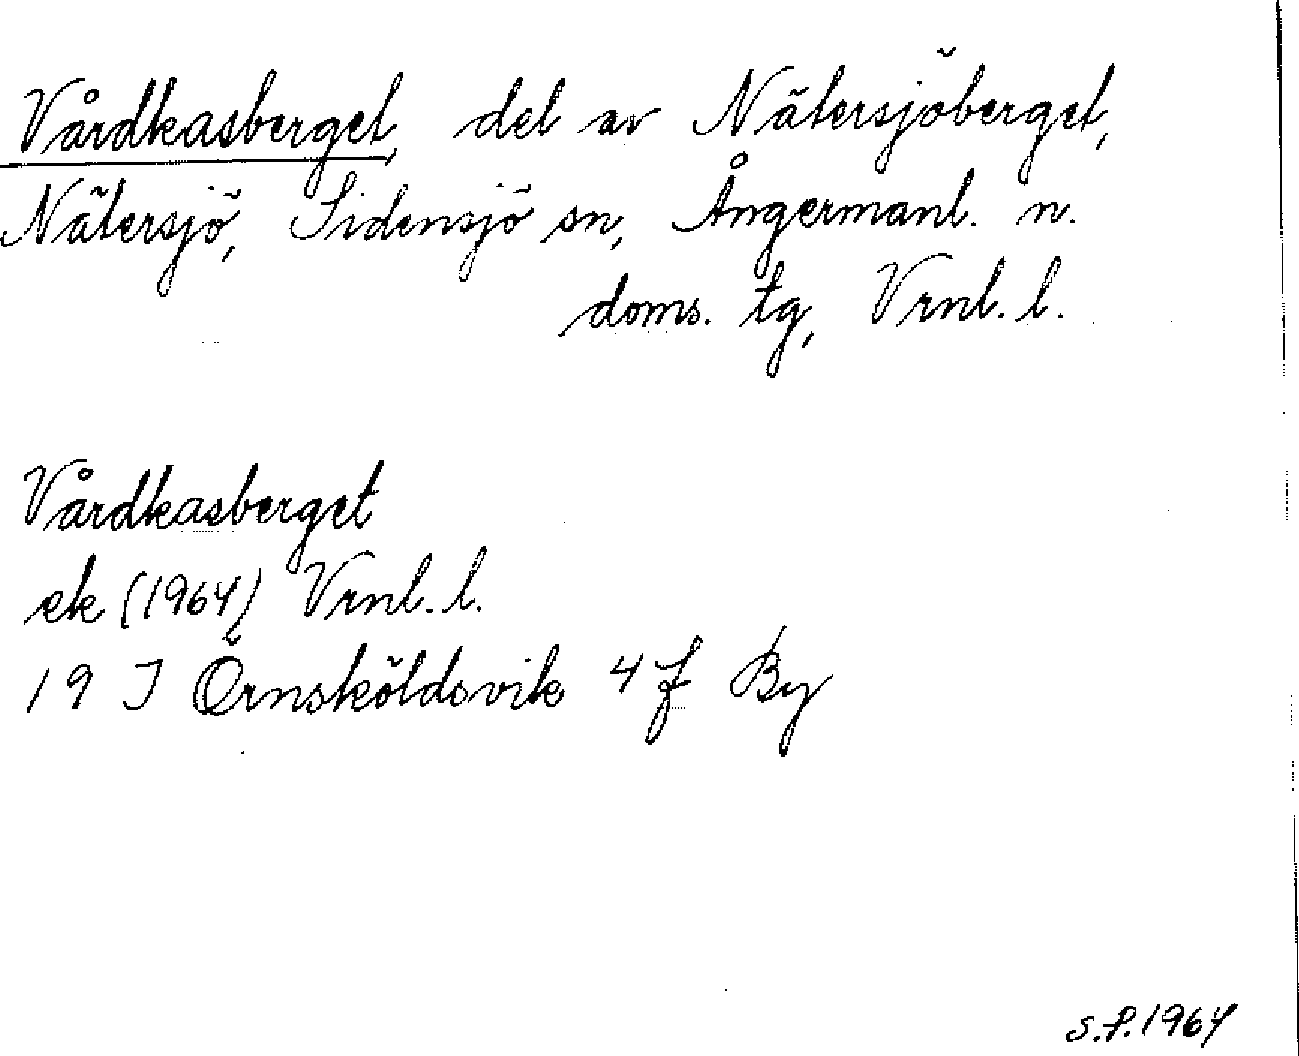 Vårdkasberget, del av Nätersjöberget,
Nätersjö, Sidensjö sn, Ångermanl. n.
doms. tg, Vrnl. l.
Vårdkasberget
ek (1964) Vrnl. l.
19 J Örnsköldsvik 4 f By
S.P. 1964